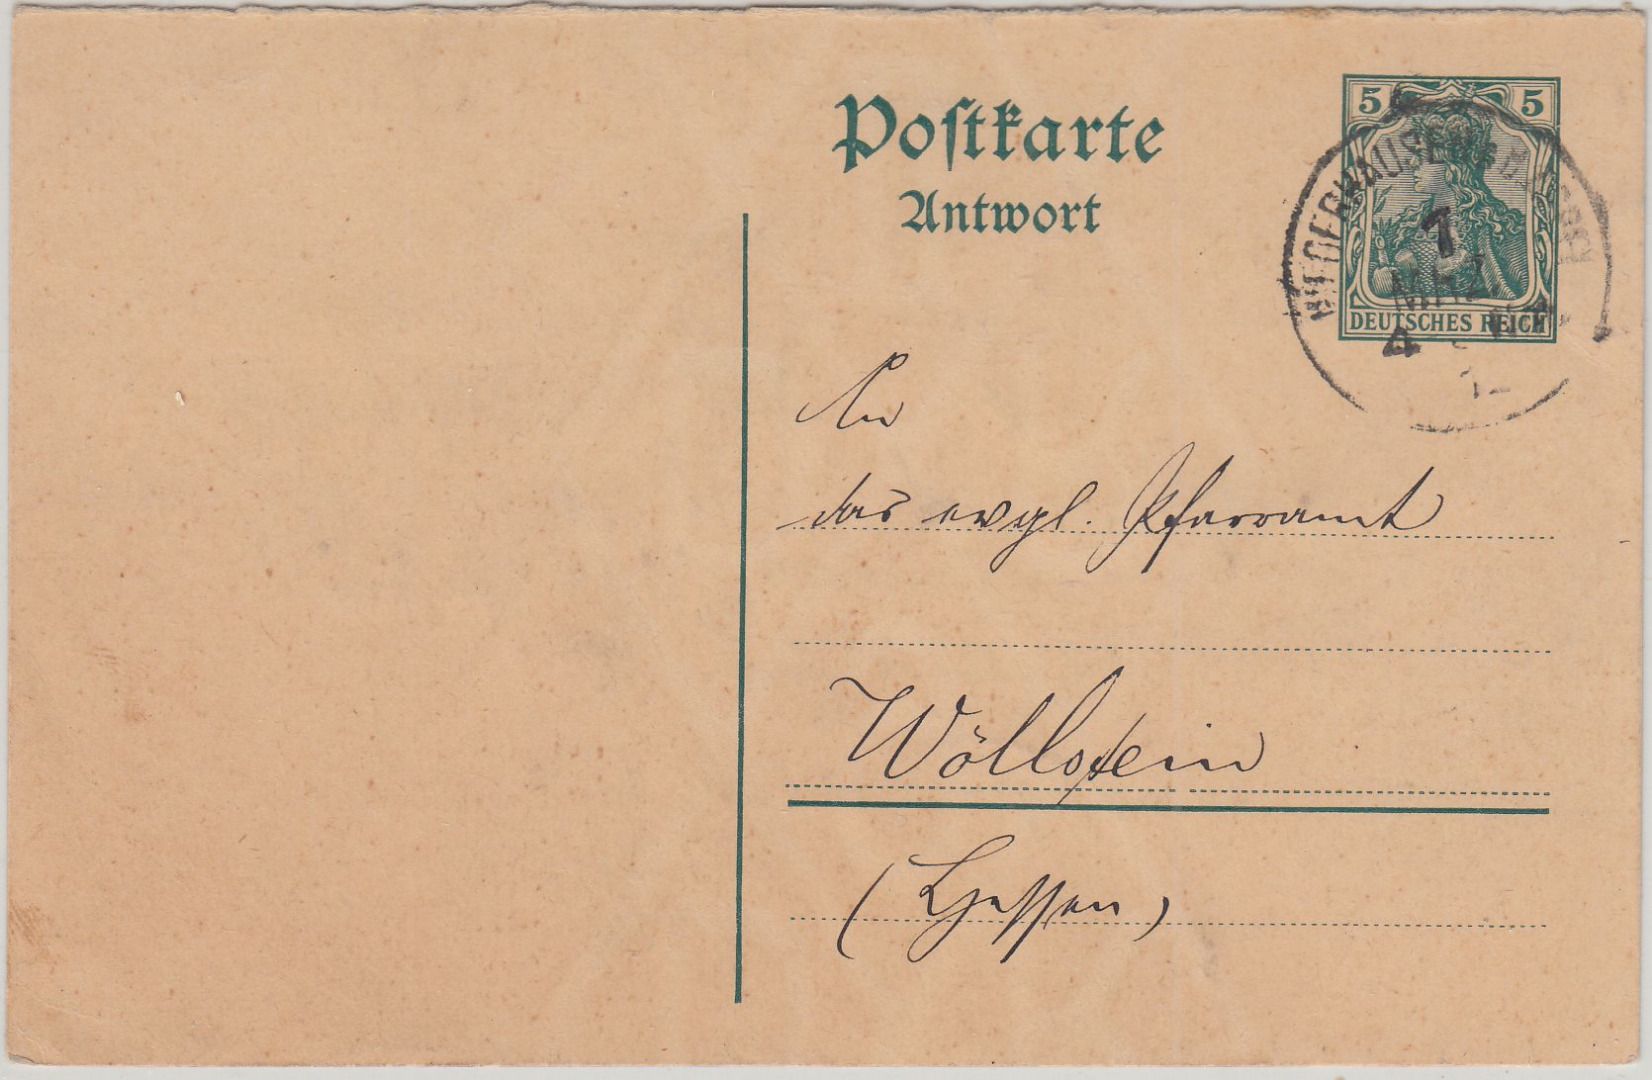 Postkarte
Antwort
5 5
DEUTSCHES REICH
NIEDERHAUSEN
7
MRZ
4
An
das evgl. Pfarramt
Wöllstein
(Hessen)